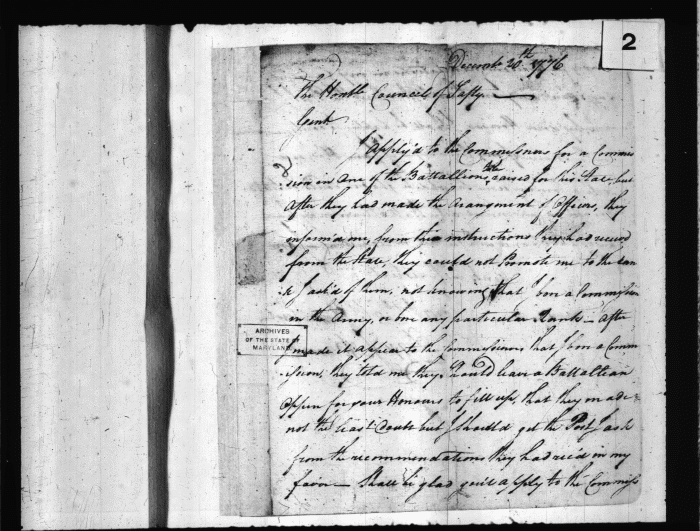 2
Decemb 20th 1776
The Honble Council of Safty.
Gent
I apply'd to the Commissners for a Commis
sion in one of the Battallions to be raised for this State, but
after they had made the Arangment of Officers, they
inform'd me, from the instructions they had reced
from the State, they could not Promote me to the ran
k I ask'd of them, not knowing that I bore a Commission
in the Army, or bore any particular Rank — after
I made it appear to the Commissioners that I bore a Comm
ission, they told me they would leave a Battallian
oppen for your Honours to fill up, that they made
not the least Doubt but I should get the Post I ask
from the recommendations they had rec'd in my
favor — Shall be glad you'd apply to the Commiss
ARCHIVES
OF THE STATE OF
MARYLAND